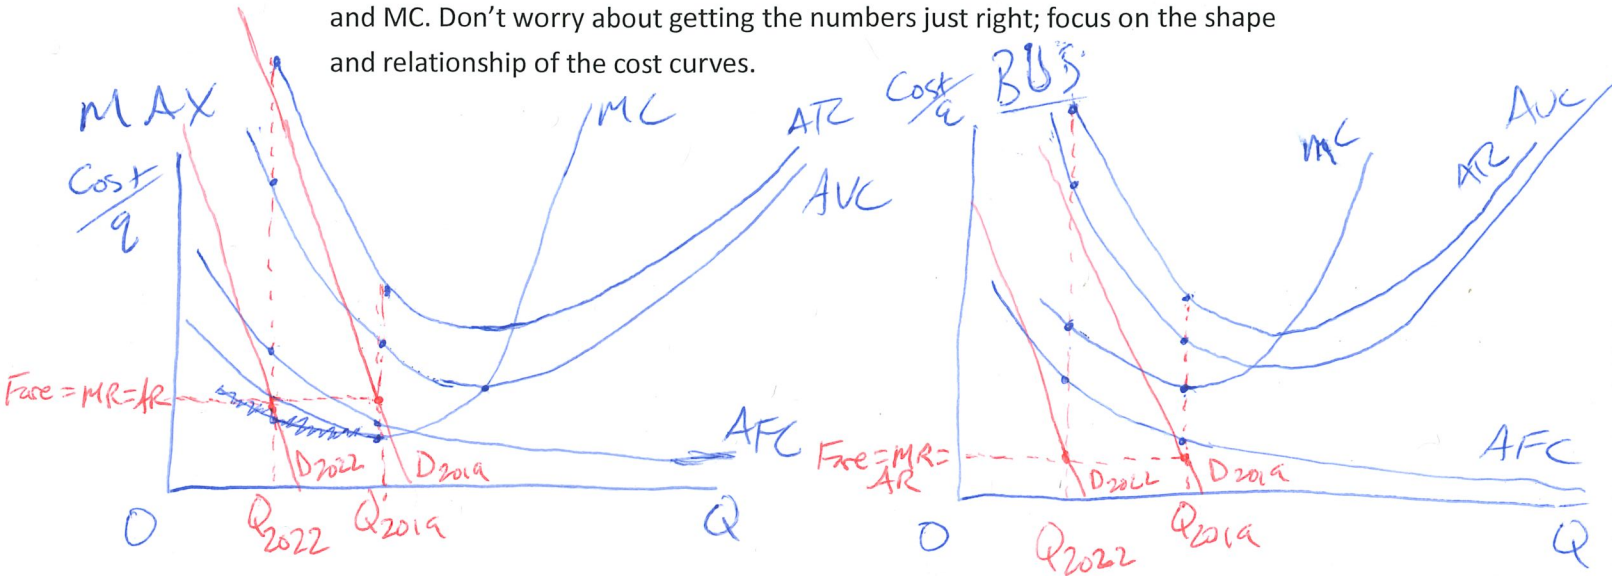 and MC. Don’t worry about getting the numbers just right; focus on the shape
and relationship of the cost curves.
MAX
Cost/q
MC
ATC
AVC
AFC
Fare = MR = AR
D2022
D2019
0
Q2022
Q2019
Q
Cost/q
BUS
MC
ATC
AVC
AFC
Fare = MR =
AR
D2022
D2019
0
Q2022
Q2019
Q